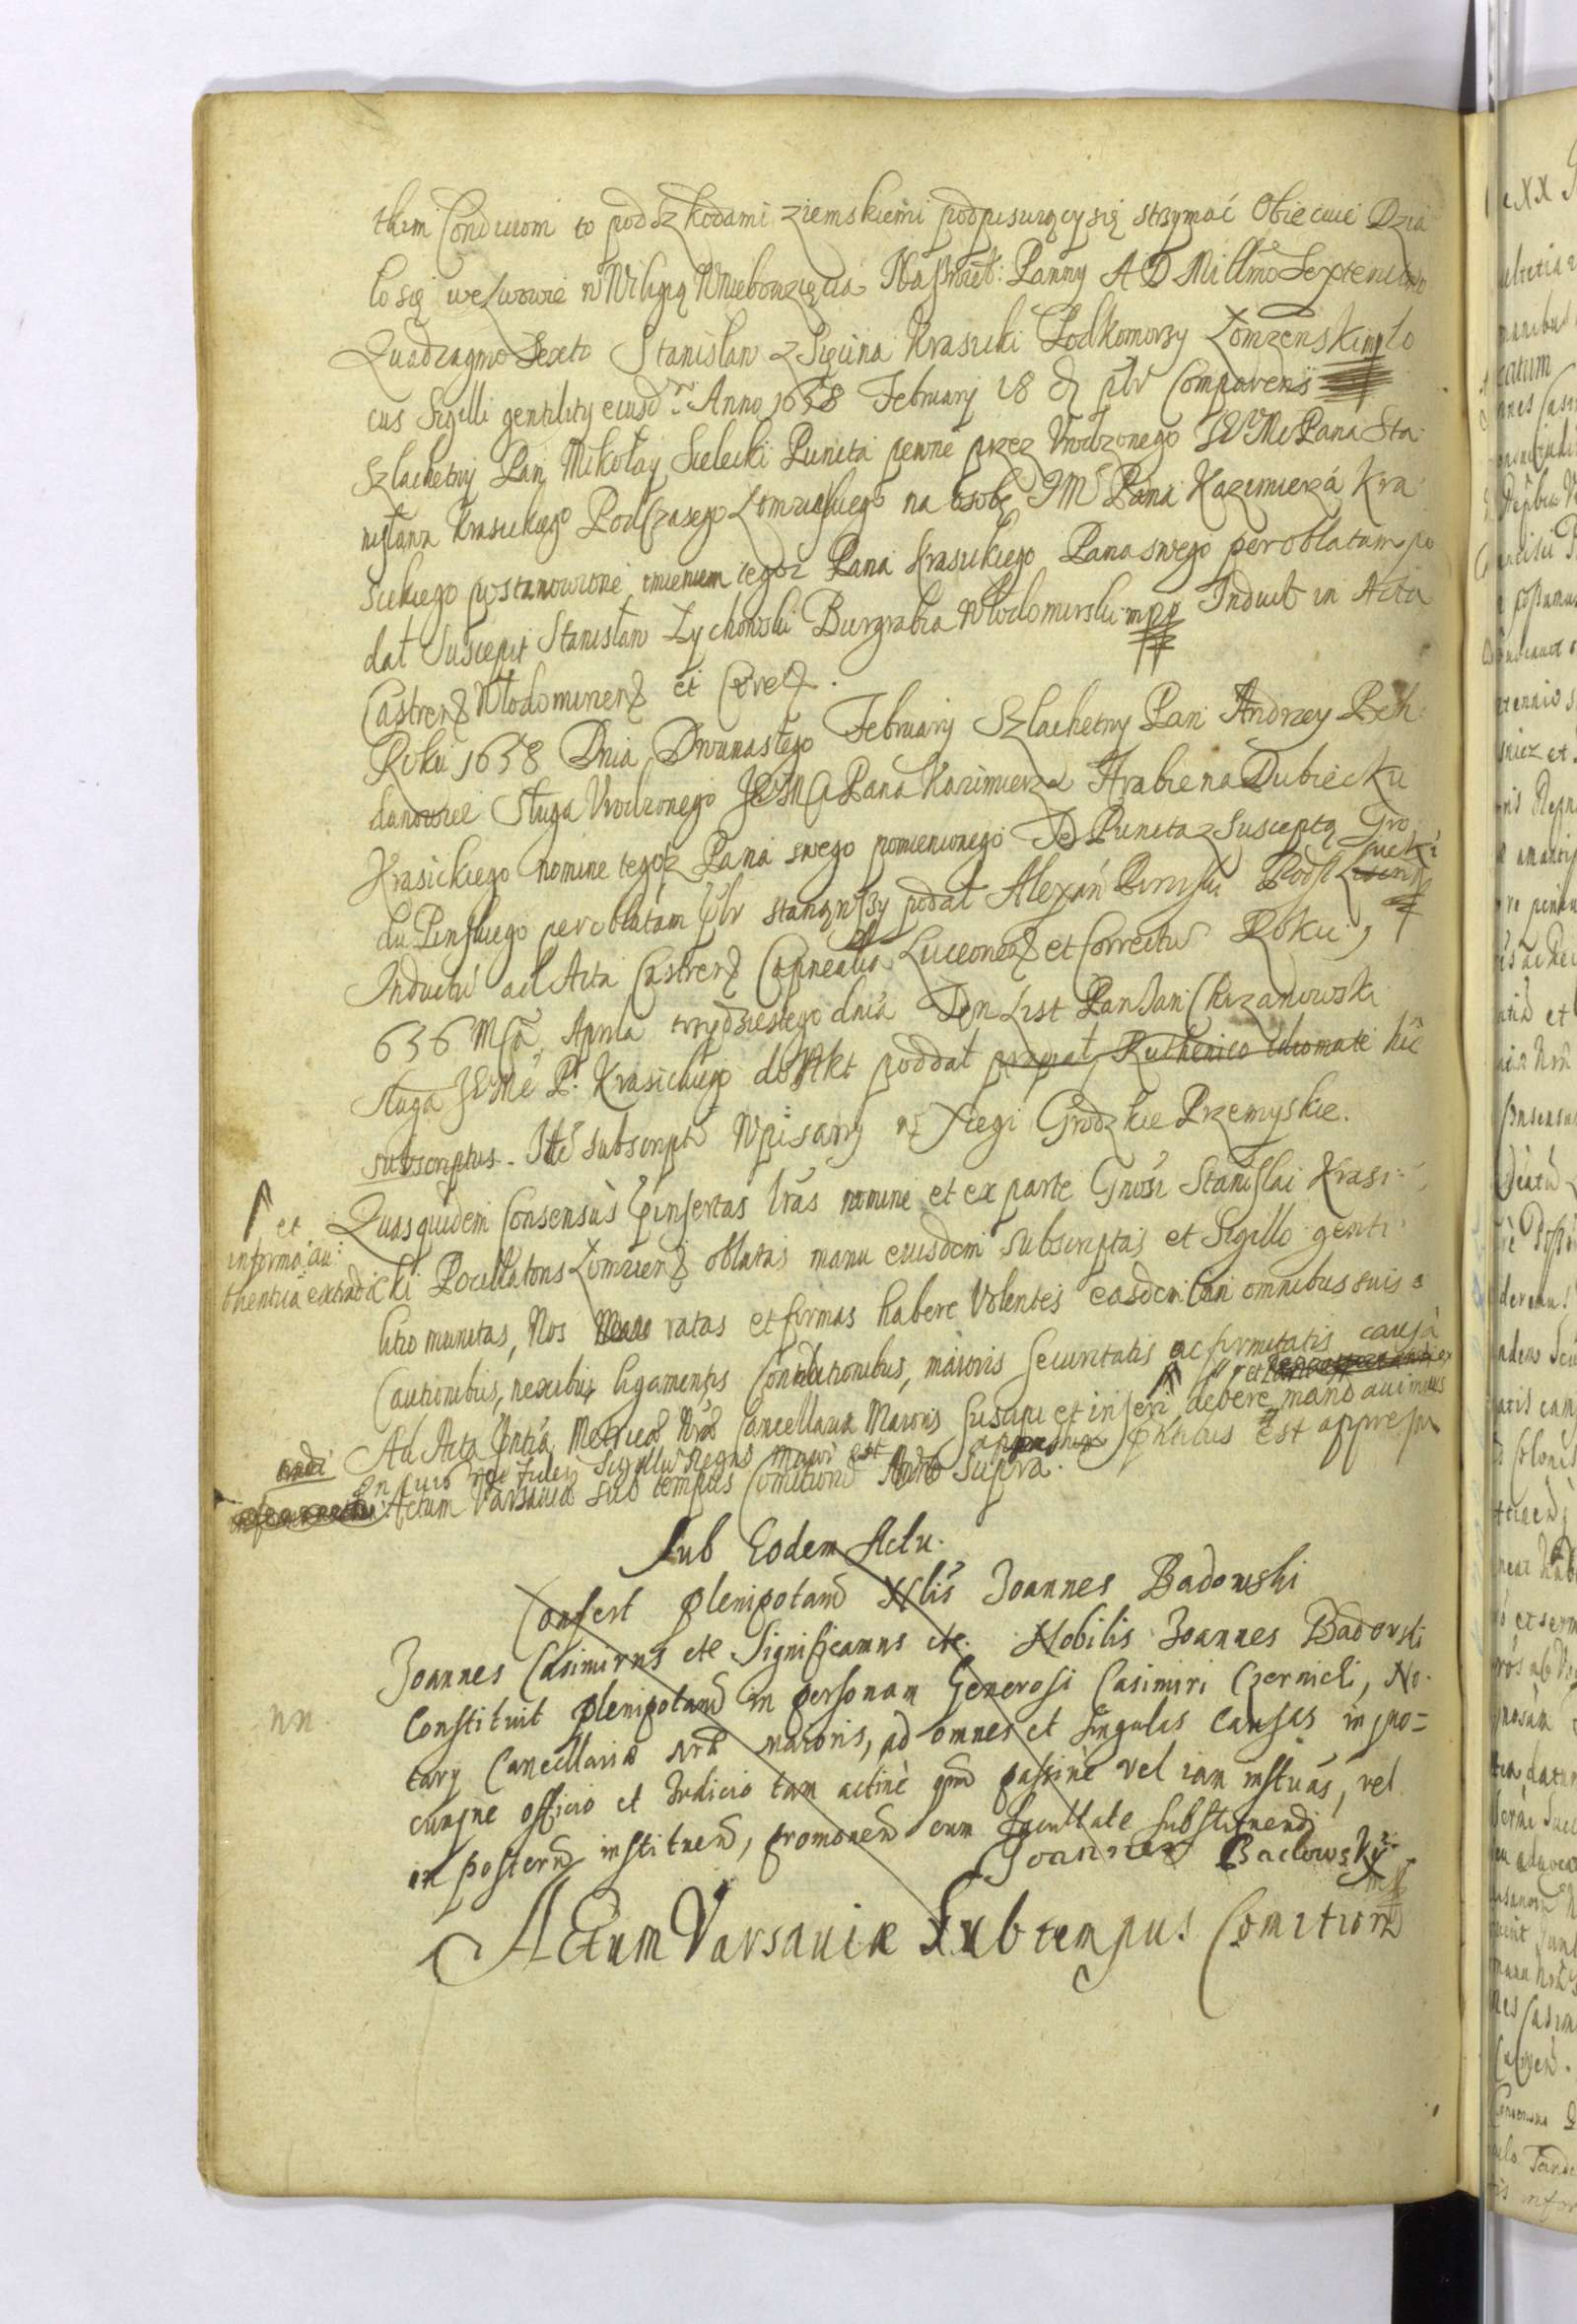 tkim Conditiom to pod szkodami ziemskiemi podpisuiący się strzymać Obiecuie Dzia
ło się we Lwowie w Wiligią Wniebowzięcia Nasswięt: Panny A D Millmo Sexcentmo
Quadragmo Sexto Stanisław z Sięcina Krasicki Podkomorzy Łomzenski mp Lo
cus Sigilli gentility eiusd. Anno 1658 Februarij 18 d plr Comparens
Szlachetny Pan Mikołay Sielecki Puncta pewne przez Vrodzonego JEMci Pana Sta
nisława Krasickiego Podczaszego Łomzinskiego na osobę JMci Pana Kazimierza Kra
sickiego postanowione imieniem tegoz Pana Krasickiego Pana swego per oblatam po
dał Suscepit Stanisław Zychowski Burgrabia Włodomirski mpp Induct in Acta
Castren Włodomirien et Corre.
Roku 1658 Dnia Dwunastego Februarij Szlachetny Pan Andrzey Boh
danowicz Sługa Vrodzonego JEMCi Pana Kazimierza Hrabie na Dubiecku
Krasickiego nomine tegoz Pana swego pomienionego Te Puncta z Susceptą Gro
du Pinskiego per oblatam plr stanąwszy podał Alexan Podst Łucki
Inductu ad Acta Castren Capnealia Luceorien et Correctu Roku 1
656 Mca Aprila trzydziestego dnia Ten List Pan Jan Chrzanowski
sługa JEMe P. Krasickiego do Akt poddał prapat Ruthenico Idiomate hic
subscriptus. Ite subscript Wpisany w Xięgi Grodzkie Przemyskie.
Quasquidem Consensus pinsertas lras nomine et ex parte Gnosi Stanislai Krasi-
et
in forma au:
thentica extradi
cki Pocillatoris Łomzien oblatas manu eiusdem subscriptas et Sigillo genti
litio munitas, Nos ratas et firmas habere Volentes easdem cum omnibus suis
Cautionibus, nexibus ligamentis Conditionibus, maioris securitatis ac firmitatis causa
Ad Acta pntia Metrices Nrae Cancellariae Maioris suscipi et inseri debere mandavimus
In cuius rei fidem Sigillu Regni maiori est pntibus est appressu
Actum Varsaviae sub tempus Comitioru Anno Supra.
Sub Eodem Actu.
Confert plenipotand Nblis Joannes Badowski
Joannes Casimirus etc Significamus etc. Nobilis Joannes Badovski
Constituit plenipotand in personam Generosi Casimiri Czernicki, No-
nn.
tarij Cancellariae nrae maioris, ad omnes et singulas causas in quo=
cunqne officio et Judicio tam active qm passive vel iam institutas, vel
in posterum instituend, promovend cum facultate substituendi
Joannes Badowsky mp
Actum Varsaviae Sub tempus Comitioru